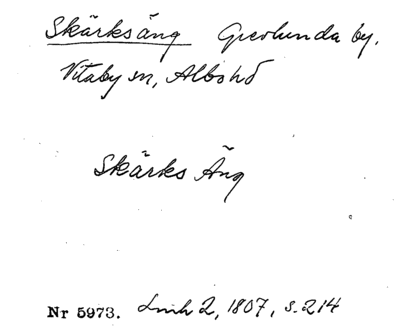 Skärksäng Grevlunda by.
Vitaby sn, Albo hd
Skärks Äng
Nr 5973. Lmh 2, 1807, s. 214